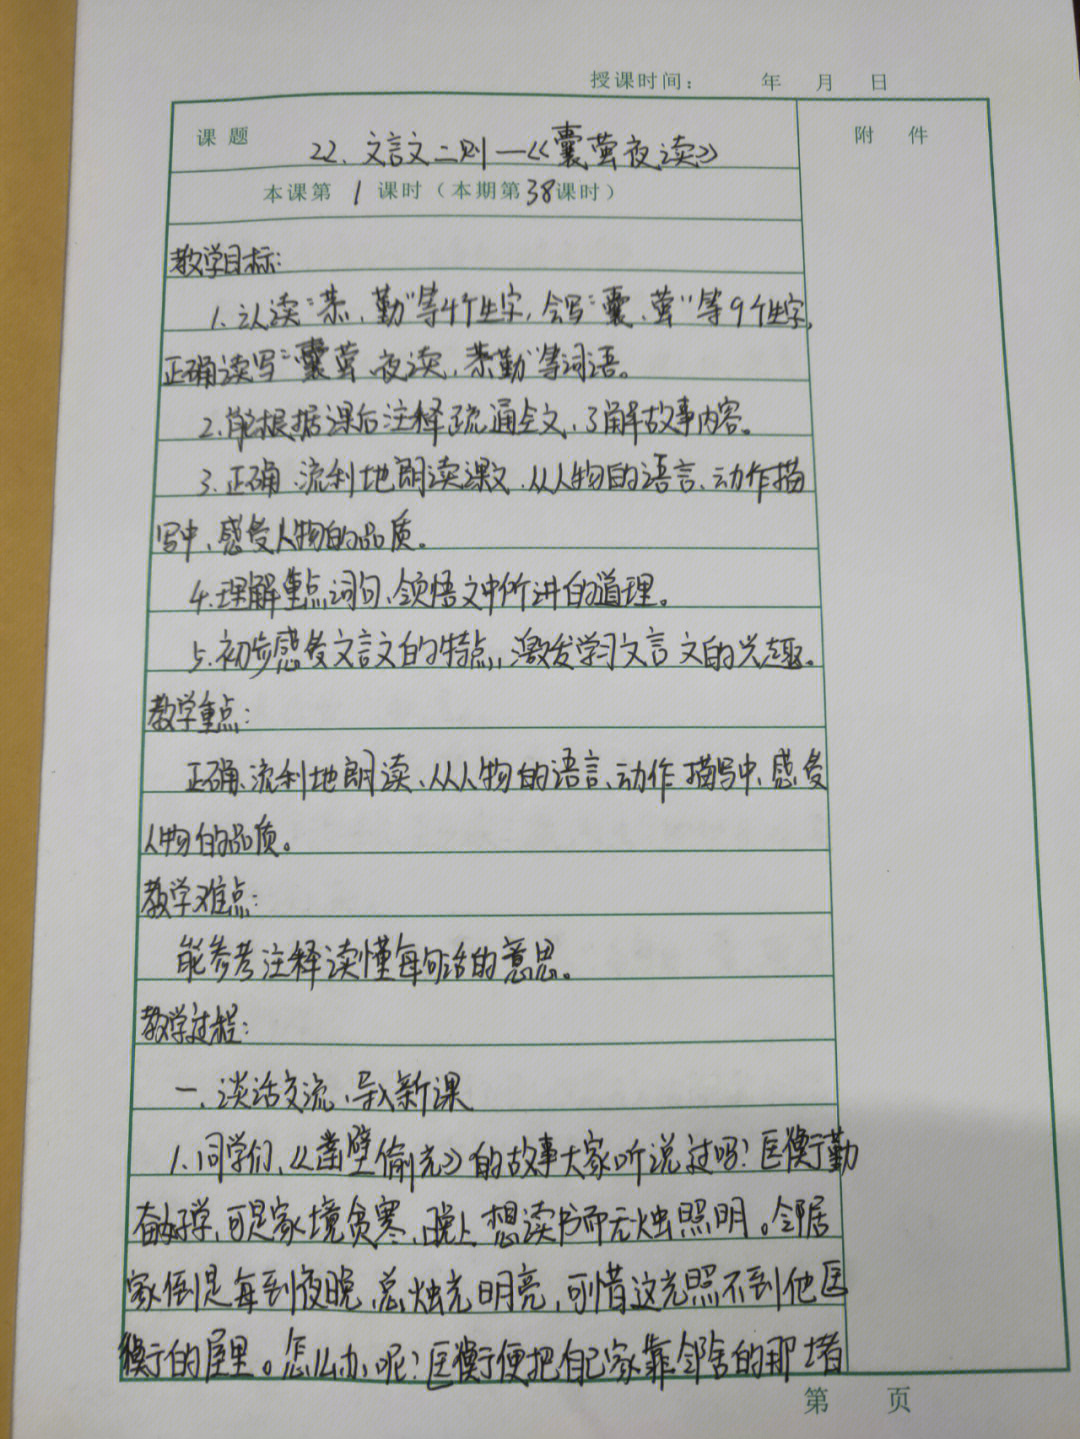 授课时间： 年 月 日
课题 22.文言文二则—《囊萤夜读》
附件
本课第1课时（本期第38课时）
教学目标：
1.认读“恭、勤”等4个生字，会写“囊、萤”等9个生字，
正确读写“囊萤夜读、恭勤”等词语。
2.能根据课后注释疏通全文、了解故事内容。
3.正确、流利地朗读课文、从人物的语言、动作描
写中、感受人物的品质。
4.理解重点词句、领悟文中所讲的道理。
5.初步感受文言文的特点，激发学习文言文的兴趣。
教学重点：
正确、流利地朗读、从人物的语言、动作描写中、感受
人物的品质。
教学难点：
能参考注释读懂每句话的意思。
教学过程：
一、谈话交流、导入新课
1.同学们、《凿壁偷光》的故事大家听说过吗？匡衡勤
奋好学，可是家境贫寒、晚上想读书而无烛照明。邻居
家倒是每到夜晚、总烛光明亮，可惜这光照不到他匡
衡的屋里。怎么办呢？匡衡便把自己家靠邻舍的那堵
第 页